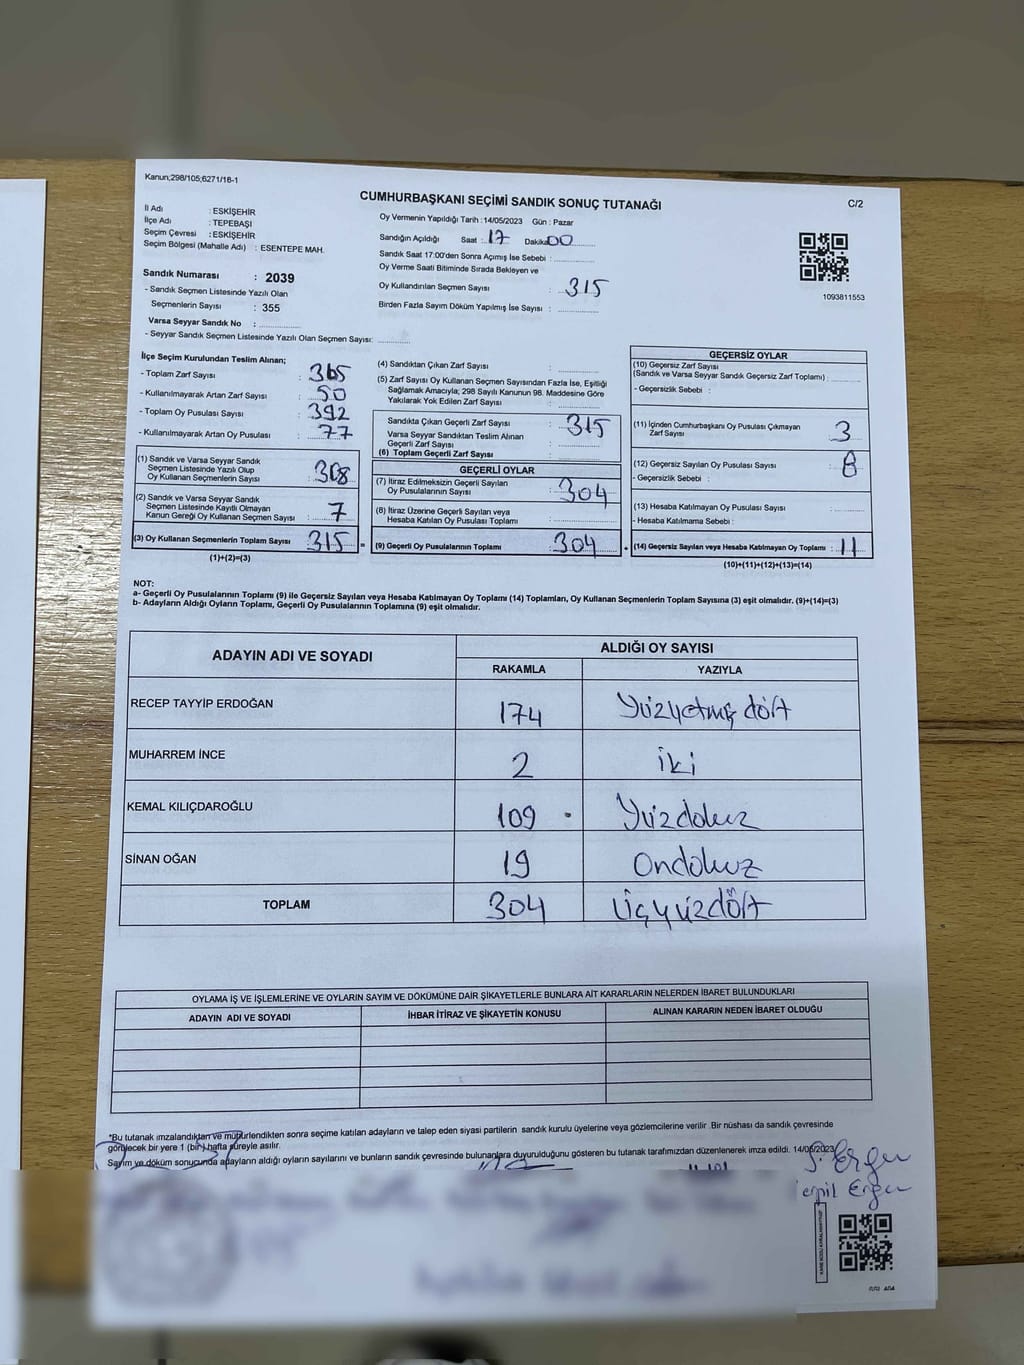 Kanun;298/105;6271/18-1
CUMHURBAŞKANI SEÇİMİ SANDIK SONUÇ TUTANAĞI
C/2
İl Adı : ESKİŞEHİR
İlçe Adı : TEPEBAŞI
Seçim Çevresi : ESKİŞEHİR
Seçim Bölgesi (Mahalle Adı) : ESENTEPE MAH.
Sandık Numarası : 2039
- Sandık Seçmen Listesinde Yazılı Olan
Seçmenlerin Sayısı : 355
Varsa Seyyar Sandık No :
- Seyyar Sandık Seçmen Listesinde Yazılı Olan Seçmen Sayısı:
Oy Vermenin Yapıldığı Tarih :14/05/2023 Gün : Pazar
Sandığın Açıldığı Saat : 17 Dakika 00
Sandık Saat 17:00'den Sonra Açımış İse Sebebi :
Oy Verme Saati Bitiminde Sırada Bekleyen ve
Oy Kullandırılan Seçmen Sayısı : 315
Birden Fazla Sayım Döküm Yapılmış İse Sayısı :
1093811553
İlçe Seçim Kurulundan Teslim Alınan;
- Toplam Zarf Sayısı : 365
- Kullanılmayarak Artan Zarf Sayısı : 50
- Toplam Oy Pusulası Sayısı : 392
- Kullanılmayarak Artan Oy Pusulası : 77
(1) Sandık ve Varsa Seyyar Sandık
Seçmen Listesinde Yazılı Olup
Oy Kullanan Seçmenlerin Sayısı : 308
(2) Sandık ve Varsa Seyyar Sandık
Seçmen Listesinde Kayıtlı Olmayan
Kanun Gereği Oy Kullanan Seçmen Sayısı : 7
(3) Oy Kullanan Seçmenlerin Toplam Sayısı 315 =
(1)+(2)=(3)
(4) Sandıktan Çıkan Zarf Sayısı :
(5) Zarf Sayısı Oy Kullanan Seçmen Sayısından Fazla İse, Eşitliği
Sağlamak Amacıyla; 298 Sayılı Kanunun 98. Maddesine Göre
Yakılarak Yok Edilen Zarf Sayısı :
Sandıkta Çıkan Geçerli Zarf Sayısı : 315
Varsa Seyyar Sandıktan Teslim Alınan
Geçerli Zarf Sayısı :
(6) Toplam Geçerli Zarf Sayısı :
GEÇERLİ OYLAR
(7) İtiraz Edilmeksizin Geçerli Sayılan
Oy Pusulalarının Sayısı : 304
(8) İtiraz Üzerine Geçerli Sayılan veya
Hesaba Katılan Oy Pusulası Toplamı :
(9) Geçerli Oy Pusulalarının Toplamı 304
GEÇERSİZ OYLAR
(10) Geçersiz Zarf Sayısı
(Sandık ve Varsa Seyyar Sandık Geçersiz Zarf Toplamı) :
- Geçersizlik Sebebi :
(11) İçinden Cumhurbaşkanı Oy Pusulası Çıkmayan
Zarf Sayısı : 3
(12) Geçersiz Sayılan Oy Pusulası Sayısı : 8
- Geçersizlik Sebebi :
(13) Hesaba Katılmayan Oy Pusulası Sayısı :
- Hesaba Katılmama Sebebi :
(14) Geçersiz Sayılan veya Hesaba Katılmayan Oy Toplamı : 11
(10)+(11)+(12)+(13)=(14)
NOT:
a- Geçerli Oy Pusulalarının Toplamı (9) ile Geçersiz Sayılan veya Hesaba Katılmayan Oy Toplamı (14) Toplamları, Oy Kullanan Seçmenlerin Toplam Sayısına (3) eşit olmalıdır. (9)+(14)=(3)
b- Adayların Aldığı Oyların Toplamı, Geçerli Oy Pusulalarının Toplamına (9) eşit olmalıdır.
ADAYIN ADI VE SOYADI ALDIĞI OY SAYISI
RAKAMLA YAZIYLA
RECEP TAYYİP ERDOĞAN 174 Yüzyetmiş dört
MUHARREM İNCE 2 iki
KEMAL KILIÇDAROĞLU 109 Yüzdokuz
SİNAN OĞAN 19 Ondokuz
TOPLAM 304 Üçyüzdört
OYLAMA İŞ VE İŞLEMLERİNE VE OYLARIN SAYIM VE DÖKÜMÜNE DAİR ŞİKAYETLERLE BUNLARA AİT KARARLARIN NELERDEN İBARET BULUNDUKLARI
ADAYIN ADI VE SOYADI İHBAR İTİRAZ VE ŞİKAYETİN KONUSU ALINAN KARARIN NEDEN İBARET OLDUĞU
*Bu tutanak imzalandıktan ve mühürlendikten sonra seçime katılan adayların ve talep eden siyasi partilerin sandık kurulu üyelerine veya gözlemcilerine verilir .Bir nüshası da sandık çevresinde
görülecek bir yere 1 (bir) hafta süreyle asılır.
Sayım ve döküm sonucunda adayların aldığı oyların sayılarını ve bunların sandık çevresinde bulunanlara duyurulduğunu gösteren bu tutanak tarafımızdan düzenlenerek imza edildi. 14/05/2023